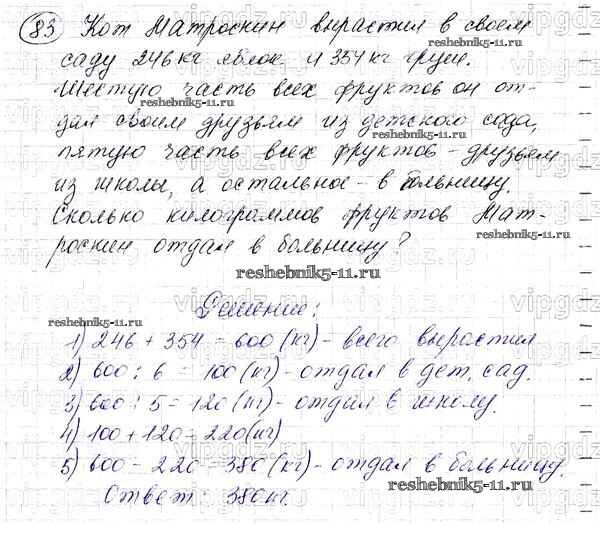 83 Кот Матроскин вырастил в своем
саду 246 кг яблок и 354 кг груш.
Шестую часть всех фруктов он от-
reshebnik5-11.ru
дал своим друзьям из детского сада,
reshebnik5-11.ru
пятую часть всех фруктов - друзьям
из школы, а остальное - в больницу.
reshebnik5-11.ru
Сколько килограммов фруктов Мат-
reshebnik5-11.ru
роскин отдал в больницу?
reshebnik5-11.ru
Решение:
reshebnik5-11.ru
1) 246 + 354 = 600 (кг) - всего вырастил
2) 600 : 6 = 100 (кг) - отдал в дет. сад.
3) 600 : 5 = 120 (кг) - отдал в школу.
4) 100 + 120 = 220 (кг)
5) 600 - 220 = 380 (кг) - отдал в больницу.
reshebnik5-11.ru
Ответ: 380 кг.